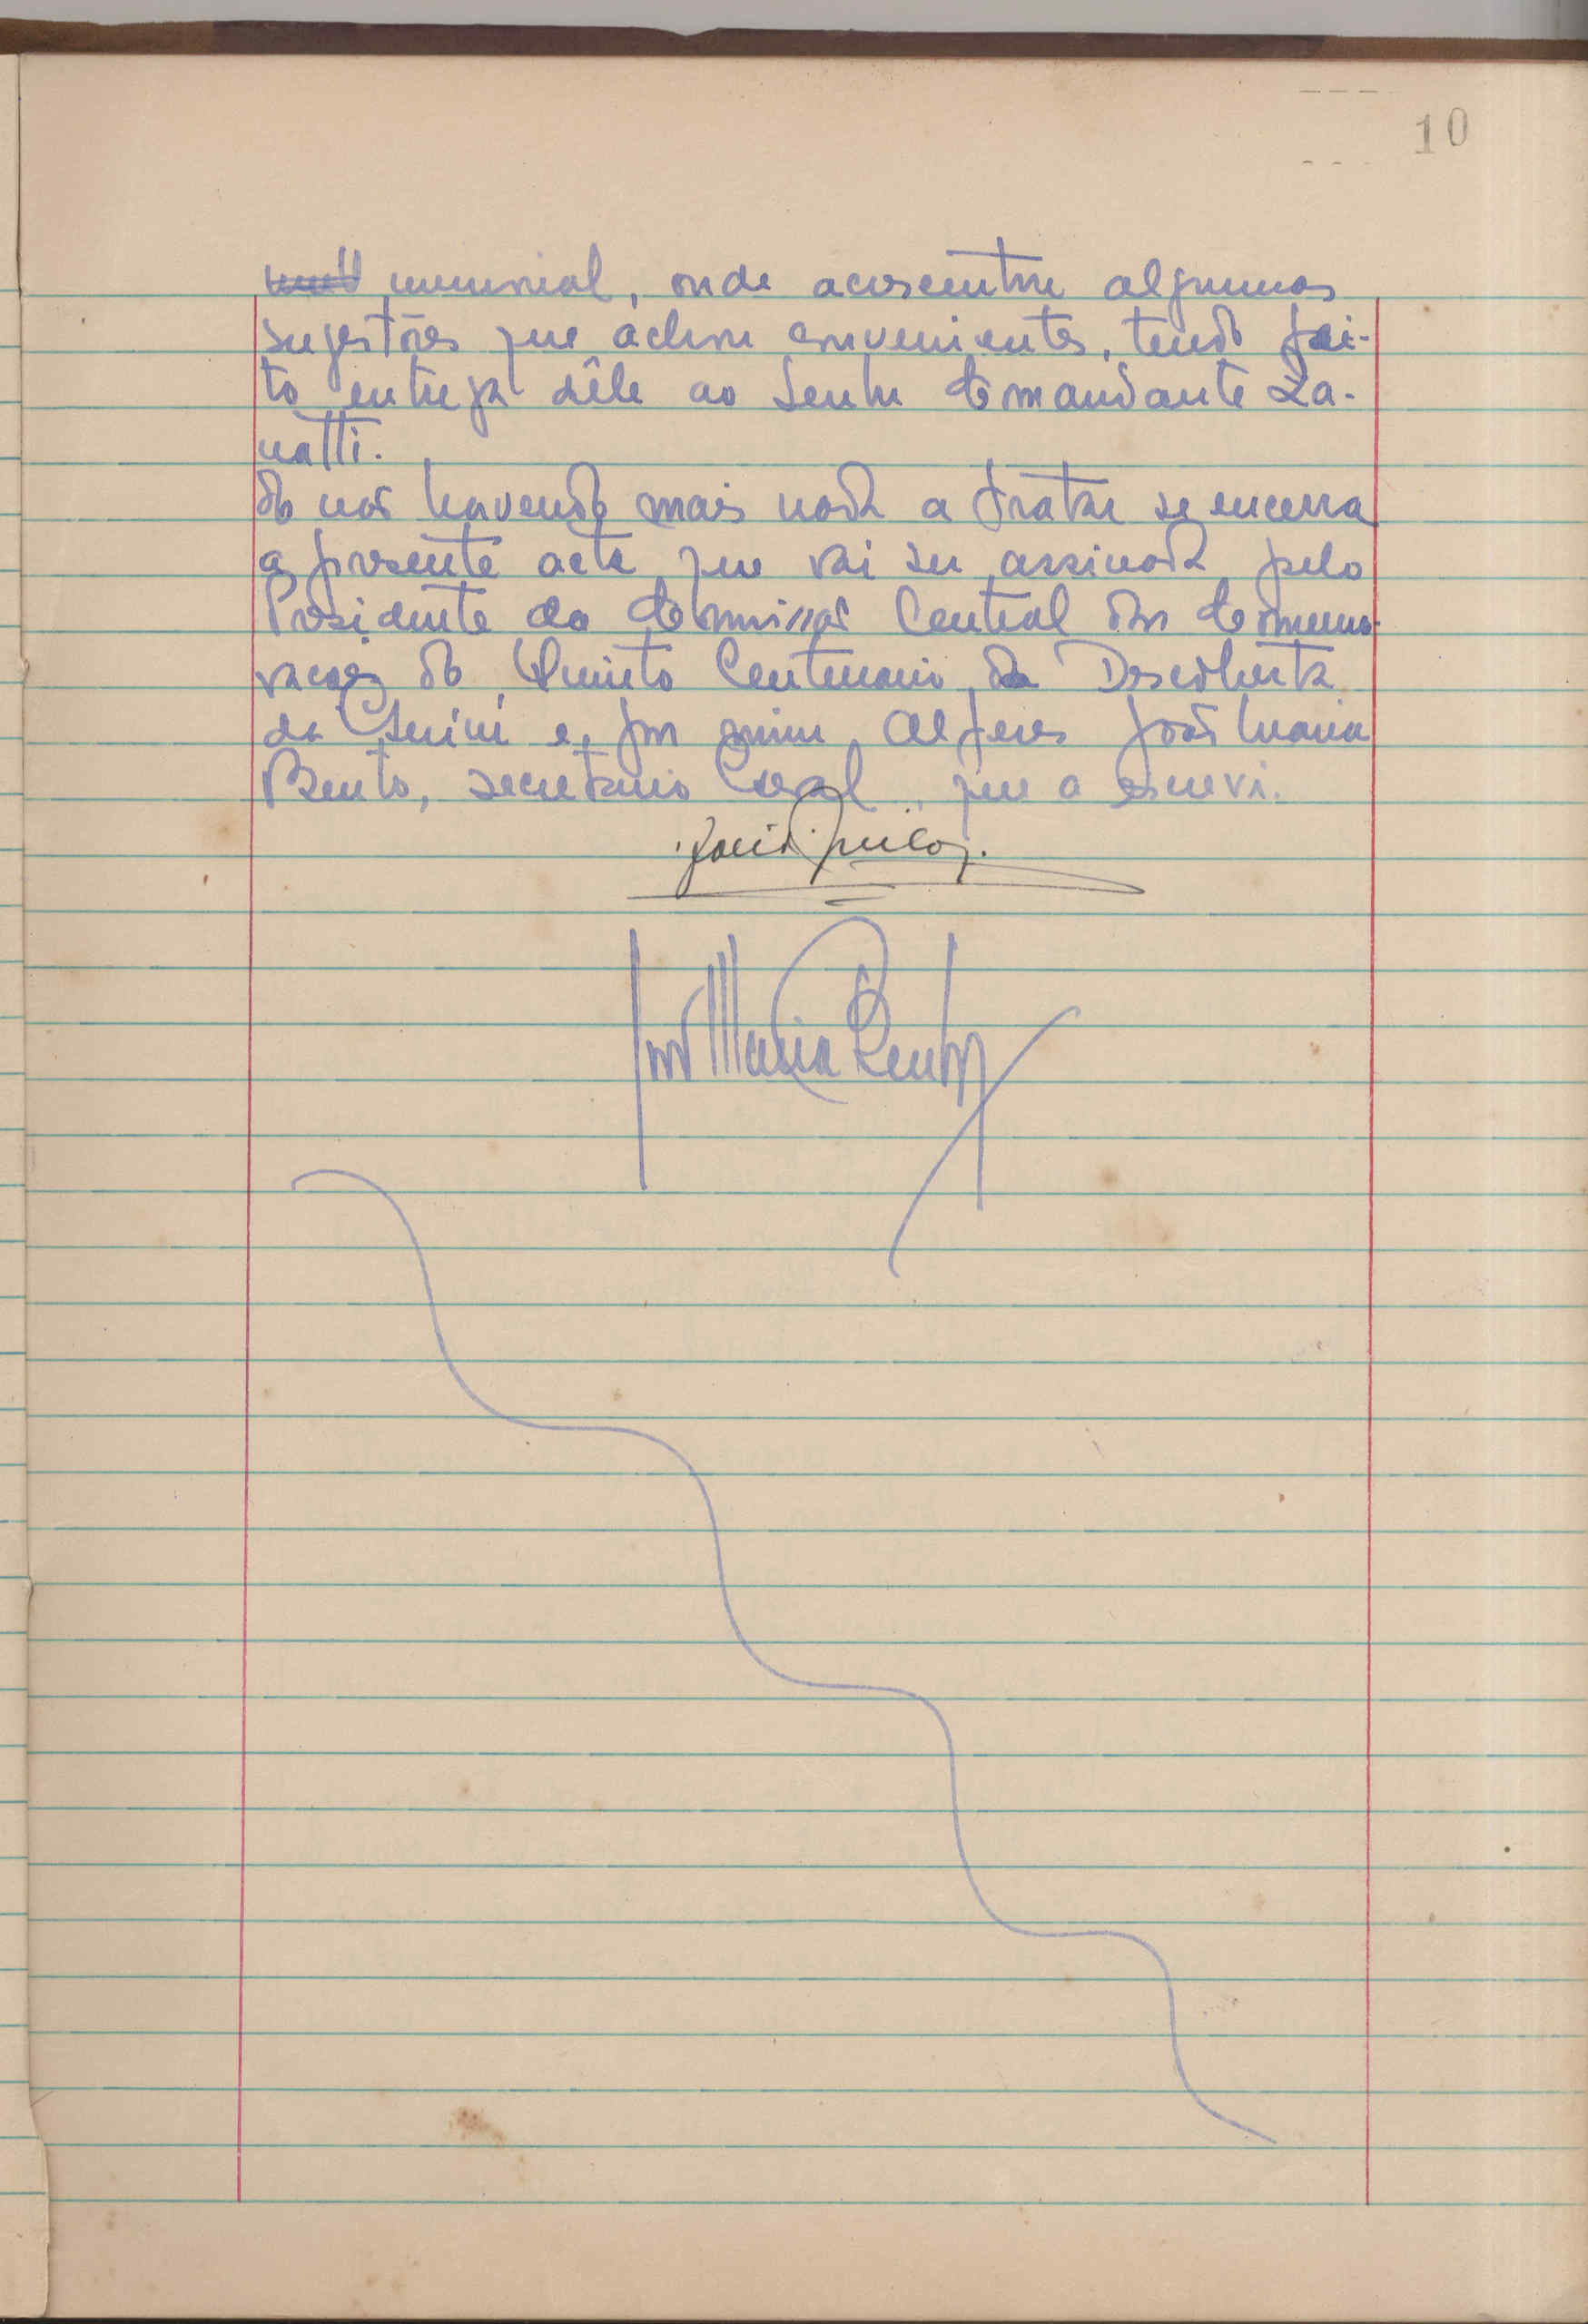 10
memorial, onde acrescentou algumas
sugestões que achou convenientes, tendo fei-
to entrega dêle ao Senhor Comandante Za-
natti.
E não havendo mais nada a tratar se encerra
a presente acta que vai ser assinada pelo
Presidente da Comissão Central das Comemo-
rações do Quinto Centenario da Descoberta
da Guiné e, por mim, Alferes João Maria
Bento, secretario Geral, que a escrevi.
João Maria Bento